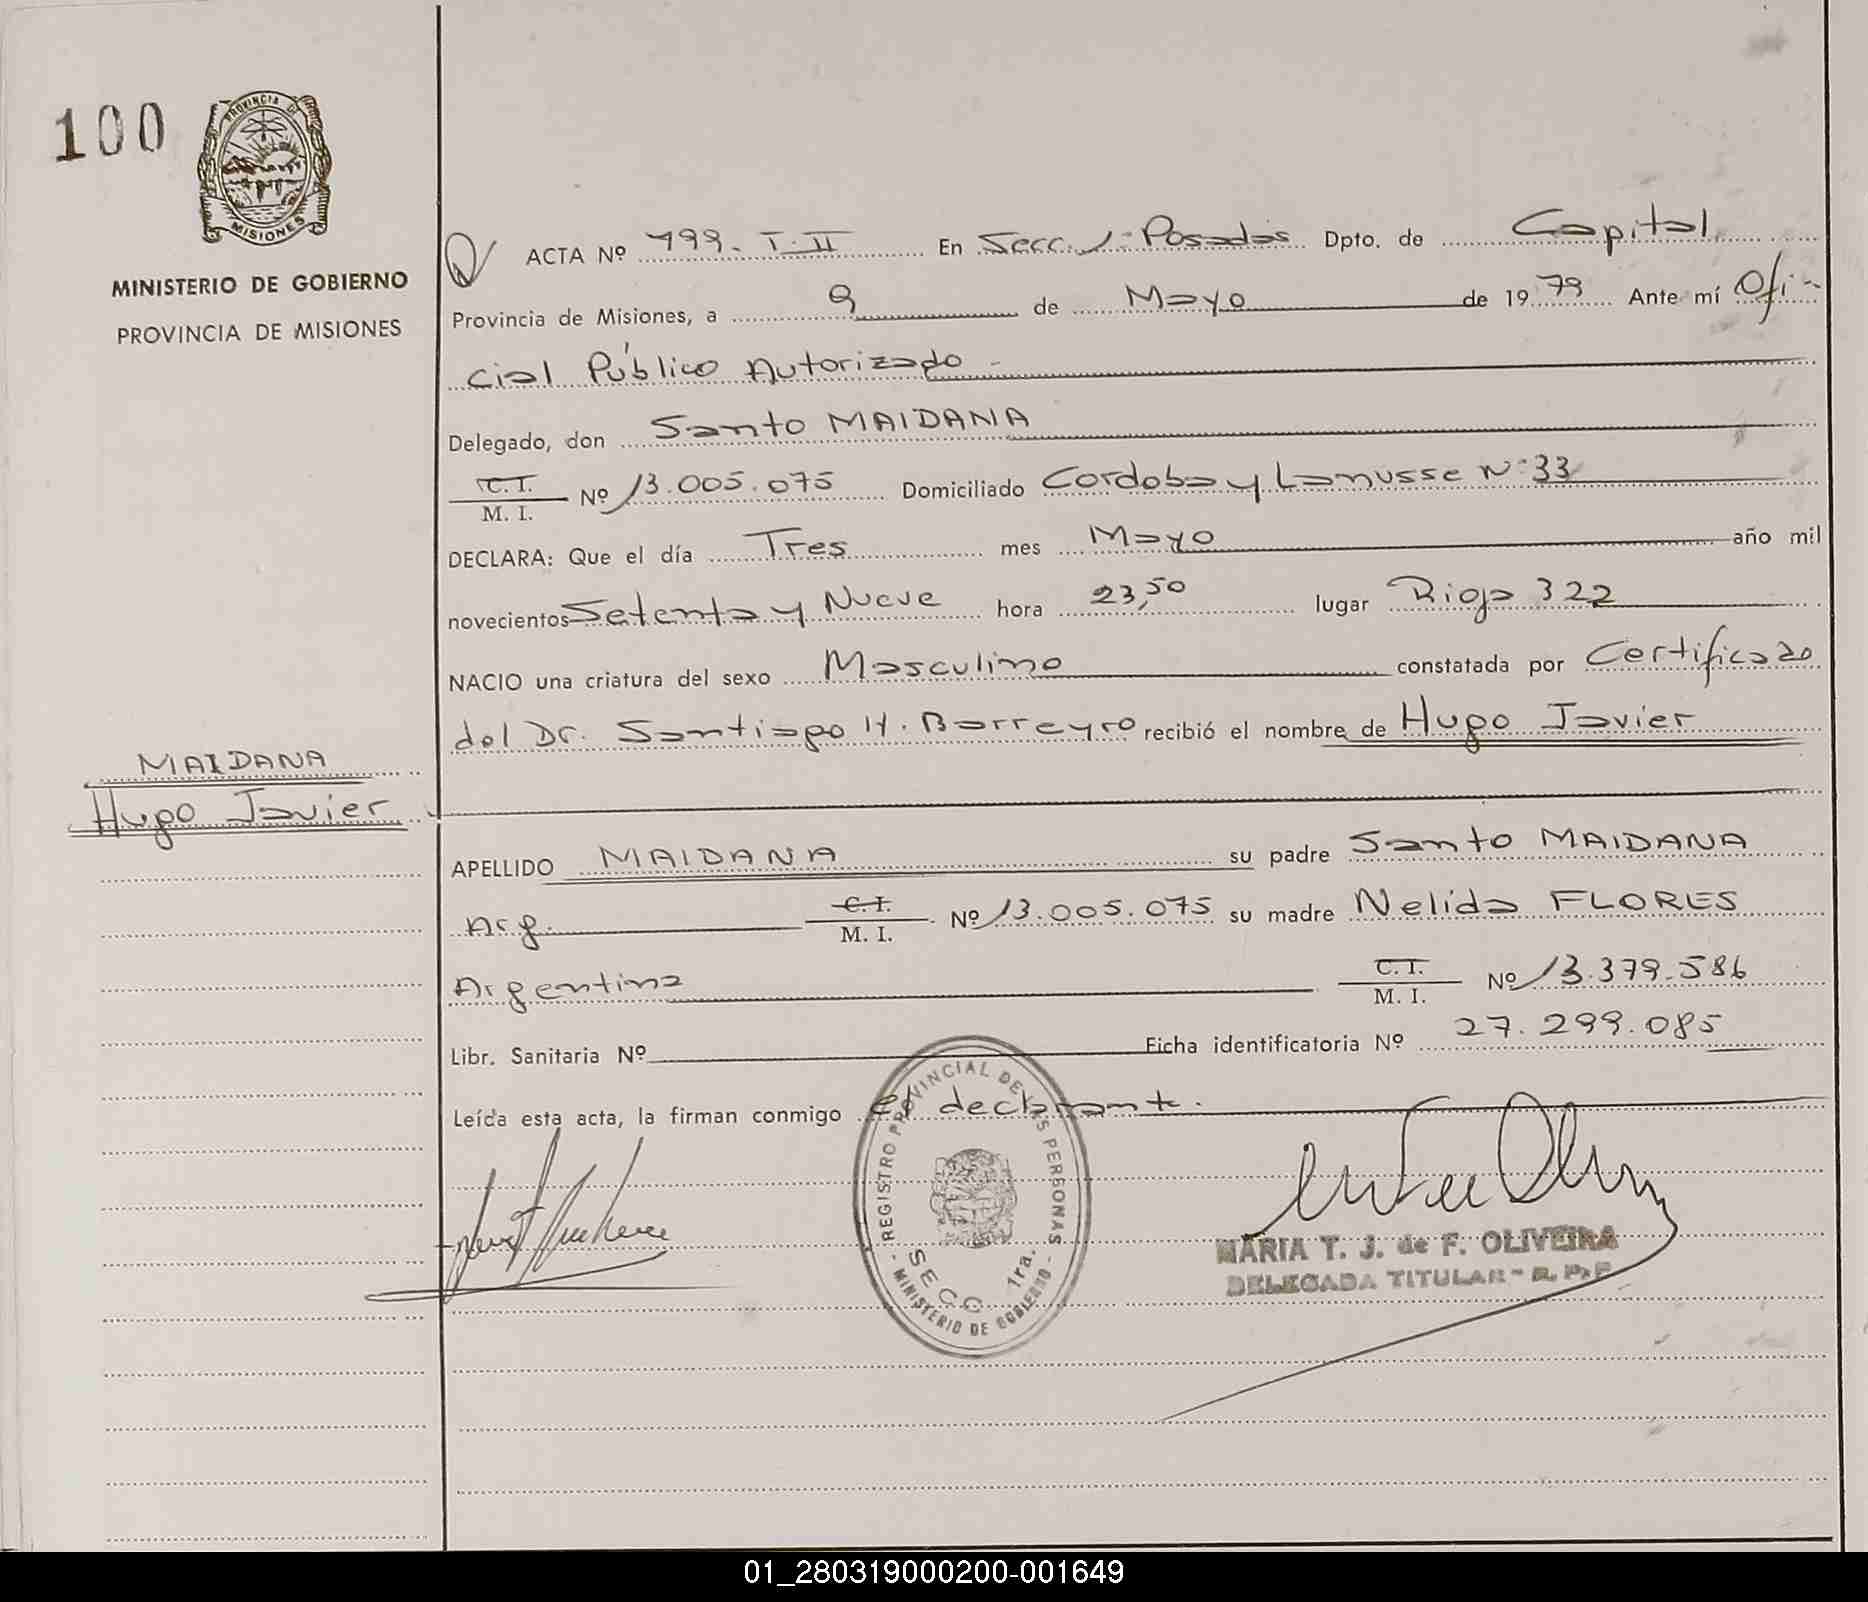 100
PROVINCIA DE
MISIONES
MINISTERIO DE GOBIERNO
PROVINCIA DE MISIONES
ACTA Nº 799. T. II En Secc. 1ª Posadas Dpto. de Capital
Provincia de Misiones, a 9 de Mayo de 1979 Ante mí Ofi-
cial Público Autorizado -
Delegado, don Santo MAIDANA
C. I. / M. I. Nº 13.005.075 Domiciliado Cordoba y Lanusse Nº 33
DECLARA: Que el día Tres mes Mayo año mil
novecientos Setenta y Nueve hora 23,50 lugar Rioja 322
NACIO una criatura del sexo Masculino constatada por Certificado
del Dr. Santiago H. Barreyro recibió el nombre de Hugo Javier
MAIDANA
Hugo Javier
APELLIDO MAIDANA su padre Santo MAIDANA
Arg. C. I. / M. I. Nº 13.005.075 su madre Nelida FLORES
Argentina C. I. / M. I. Nº 13.379.586
Libr. Sanitaria Nº Ficha identificatoria Nº 27.299.085
Leída esta acta, la firman conmigo el declarante.
REGISTRO PROVINCIAL DE LAS PERSONAS
SECC 1ra.
- MINISTERIO DE GOBIERNO -
MARIA T. J. de F. OLIVEIRA
DELEGADA TITULAR - R. P. P
01_280319000200-001649